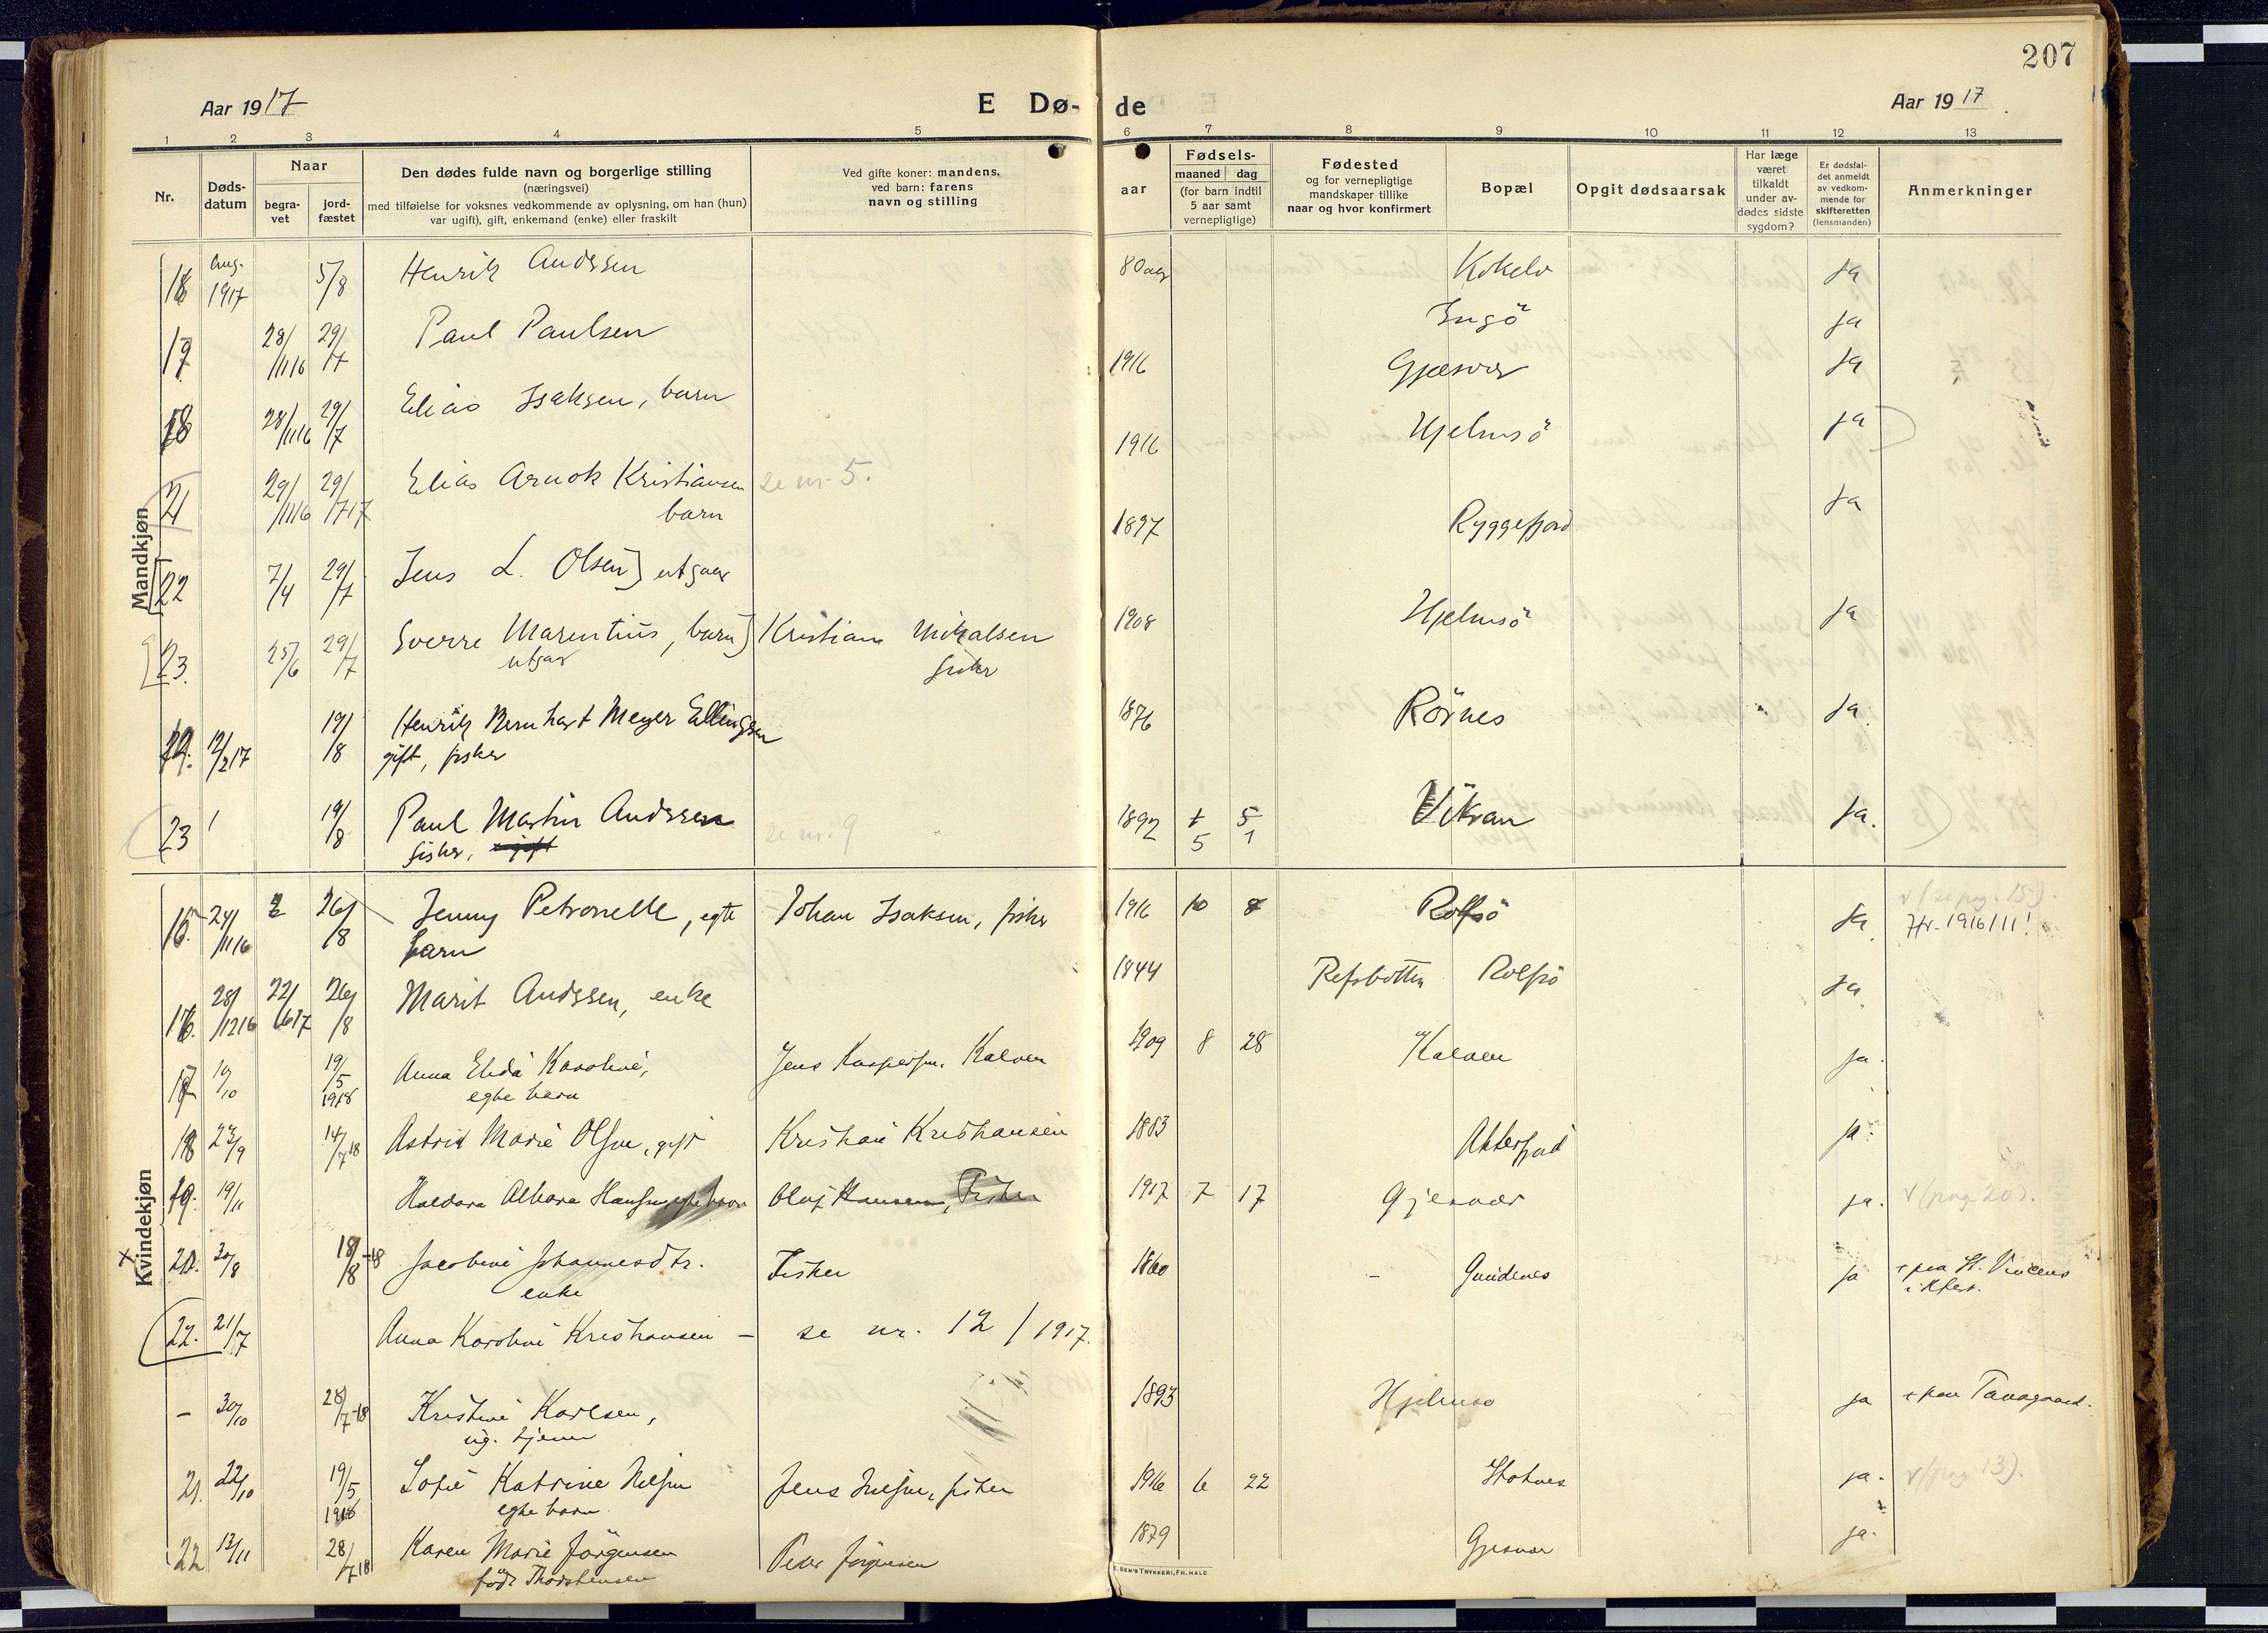 207
Aar 1917
E Dø-
de
Aar 1917
1 2 3 4 5 6 7 8 9 10 11 12 13
Nr.
Døds-
datum
Naar
begra-
vet
jord-
fæstet
Den dødes fulde navn og borgerlige stilling
(næringsvei)
med tilføielse for voksnes vedkommende av oplysning, om han (hun)
var ugift), gift, enkemand (enke) eller fraskilt
Ved gifte koner: mandens,
ved barn: farens
navn og stilling
aar
Fødsels-
maaned dag
(for barn indtil
5 aar samt
vernepligtige)
Fødested
og for vernepligtige
mandskaper tillike
naar og hvor konfirmert
Bopæl
Opgit dødsaarsak
Har læge
været
tilkaldt
under av-
dødes sidste
sygdom?
Er dødsfal-
det anmeldt
av vedkom-
mende for
skifteretten
(lensmanden)
Anmerkninger
Mandkjøn
16 Aug. 1917 5/8 Henrik Andssen 80 aar Kokelv Ja
17 28/11 16 29/7 Paul Paulsen Ingö Ja
1916 Gjæsvær Ja
18 28/11 16 29/7 Elias Isaksen, barn
1916 Hjelmsö Ja
21 29/11 16 29/7 17 Elias Arnok Kristiansen se nr. 5.
barn
1897 Ryggefjord Ja
22 7/4 29/7 Jens L. Olsen] utgaar
1908 Hjelmsö Ja
23. 25/6 29/7 Sverre Marentius, barn] Kristian Mikalsen
utgaar fisker
1876 Rörnes Ja
12/2 17 19/8 Henrik Bernhart Meyer Ellingsen
gift, fisker
23 19/8 Paul Martin Andssen se nr. 9 1892 5 1 Vikran Ja.
fisker,
Kvindekjøn
15 24/11 16 26/8 Jenny Petronelle, egte Johan Isaksen, fisker 1916 10 8 Rolfsö Ja v (se pag. 15).
barn Hr. 1916/11!
16. 28/12 16 22/6 17 26/8 Marit Andssen, enke 1844 Refsbotten Rolfsö Ja
17 10/10 19/5 1918 Anna Elida Karoline, Jens Kaspersen, Kalven 1909 8 28 Kalven ja.
egte barn
18 19/9 14/7 18 Astrid Marie Olsen, gift Kristian Kristiansen 1883 Akkerfjord ja.
19. 19/11 Haldora Albara Hansen egte barn Olaf Hansen, Fisker 1917 7 17 Gjesvær ja. v (pag 20
20. 30/8 18/8 -18 Jacobine Johannesdtr. Fisker 1860 - Gundenes ja paa St. Vincens
enke i Hfest.
22. 21/7 Anna Karoline Kristiansen - se nr. 12 / 1917.
- 30/10 28/7 -18 Kristine Karlsen, 1893 Hjelmsö ja
ug. tjener
21. 22/10 19/5 1918 Sofie Katrine Nilsen Jens Nilsen, fisker 1916 6 22 ja. v (pag 13).
egte barn
22 13/11 28/7 18 Karen Marie Jörgensen Peder Jörgensen 1879 Gjesvær ja.
født Thorstensen